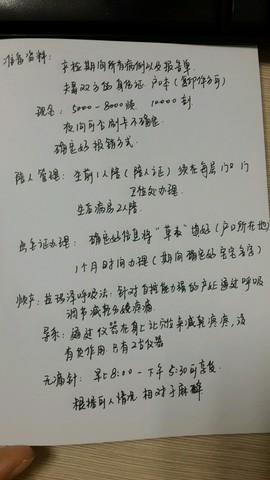 准备资料: 产检期间所有病例以及报告单
夫妻双方的身份证 户口本 (复印件亦可)
现金: 5000-8000顺 10000剖
夜间可否刷卡不确定
确定好报销方式
陪人管理: 生前1人陪 (陪人证) 须在每层门口
卫住处办理
生后病房2人陪
出生证办理: 确定好信息将"草表"填好 (户口所在地)
1个月时间办理 (期间确定好宝宝名字)
顺产: 拉玛泽呼吸法: 针对自控能力强的产妇 通过呼吸
调节减轻分娩疼痛
导乐: 通过仪器在身上让 减轻疼痛, 没
有负作用 只有2台仪器
无痛针: 早上8:00 - 下午5:30可享受
根据可人情况 相对于麻醉